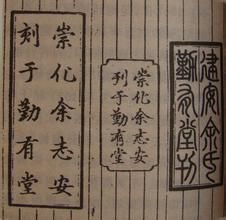 建安余氏
勤有堂刊
崇化余志安
刊于勤有堂
崇化余志安
刻于勤有堂